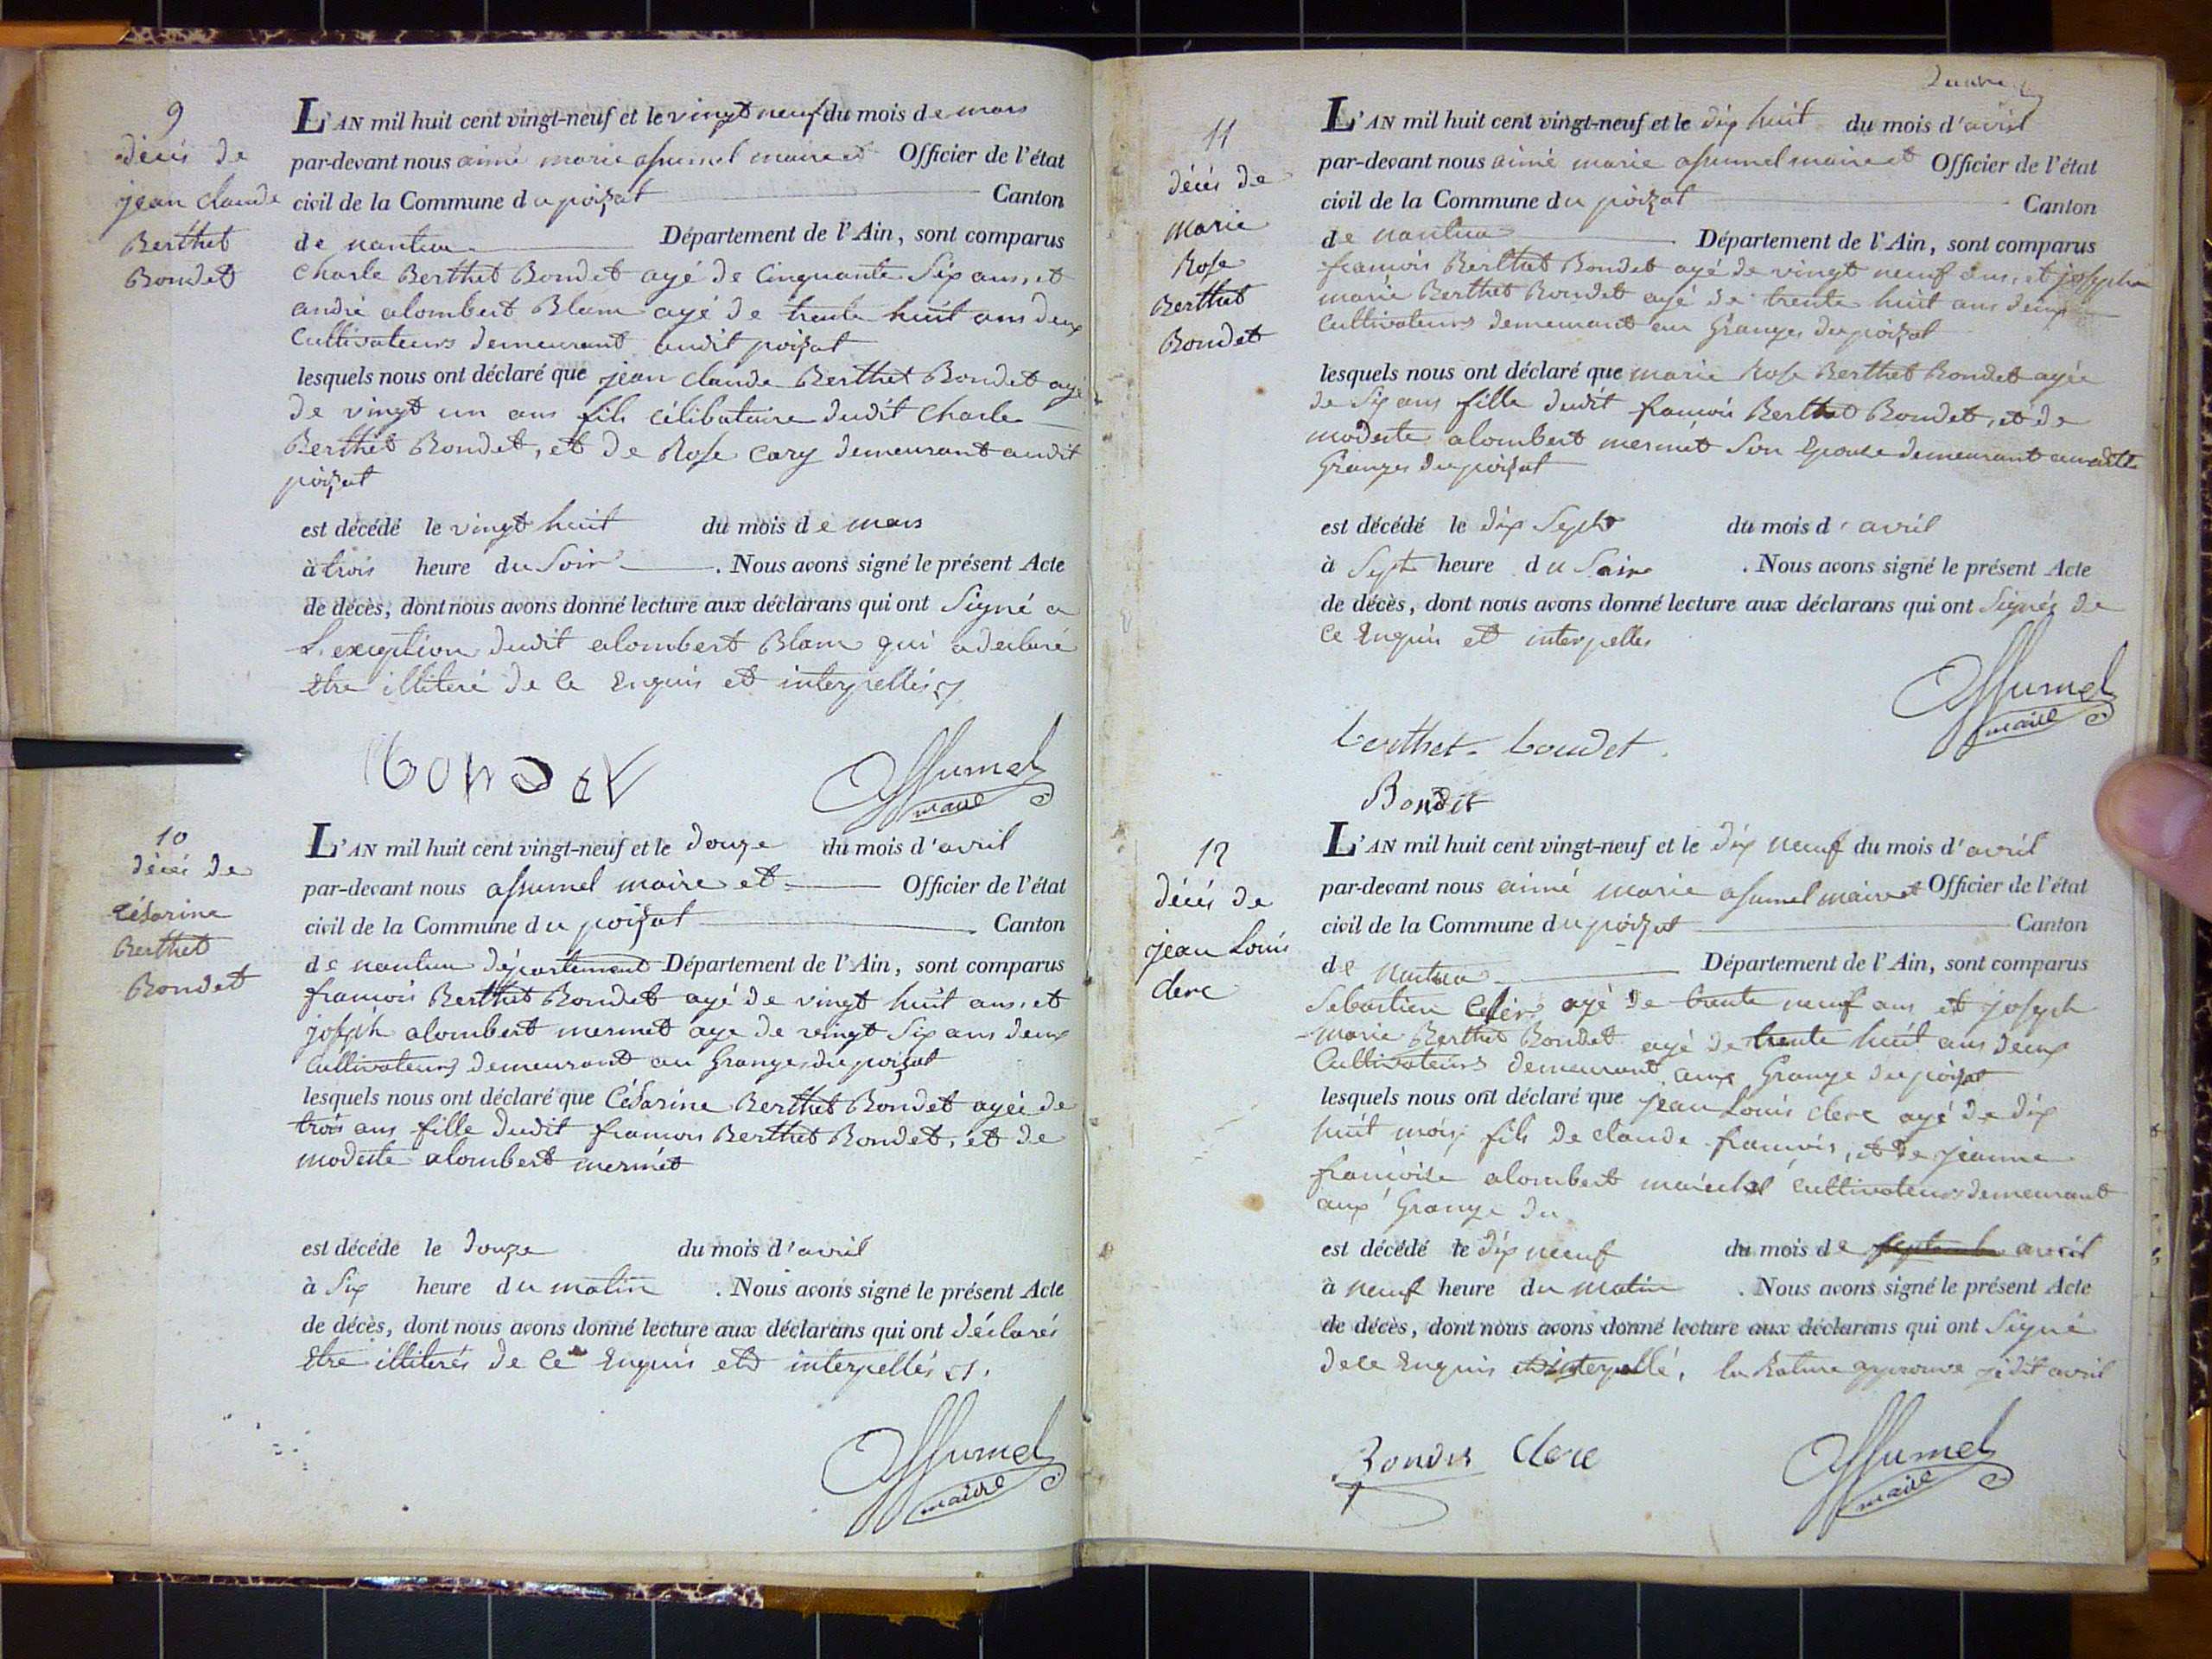 9
décès de
jean claude
Berthet
Bondet
L'AN mil huit cent vingt-neuf et le vingt neuf du mois de mars
par-devant nous aimé marie assumel maire et Officier de l'état
civil de la Commune du poizat Canton
de nantua Département de l'Ain, sont comparus
charle Berthet Bondet agé de Cinquante Six ans, et
andré alombert Blam agé de trente huit ans deux
Cultivateurs demeurant audit poizat
lesquels nous ont déclaré que jean claude Berthet Bondet agé
de vingt un ans fils célibataire dudit charle
Berthet Bondet, et de Rose Cary demeurant audit
poizat
est décédé le vingt huit du mois de mars
à trois heure du Soir . Nous avons signé le présent Acte
de décès, dont nous avons donné lecture aux déclarans qui ont Signé a
L'exception dudit alombert Blam qui a déclaré
Etre illiteré de Ce Enquis et interpellés
Bondet
Assumel
maire
10
décés de
Césarine
Berthet
Bondet
L'AN mil huit cent vingt-neuf et le douze du mois d'avril
par-devant nous assumel maire et Officier de l'état
civil de la Commune du poizat Canton
de nantua département Département de l'Ain, sont comparus
francois Berthet Bondet agé de vingt huit ans, et
joseph alombert mermet age de vingt Six ans deux
Cultivateurs demeurant au Granges du poizat
lesquels nous ont déclaré que Césarine Berthet Bondet agée de
trois ans fille dudit francois Berthet Bondet, et de
modeste alombert mermet
est décédé le douze du mois d'avril
à Six heure du matin . Nous avons signé le présent Acte
de décès, dont nous avons donné lecture aux déclarans qui ont déclarés
Etre illiterés de Ce Enquis et interpellés
Assumel
maire
11
décés de
marie
Rose
Berthet
Bondet
L'AN mil huit cent vingt-neuf et le dix huit du mois d'avril
par-devant nous aimé marie assumel maire et Officier de l'état
civil de la Commune du poizat Canton
de nantua Département de l'Ain, sont comparus
francois Berthet Bondet agé de vingt neuf ans, et joseph
marie Berthet Bondet agé de trente huit ans deux
Cultivateurs demeurant au Granges du poizat
lesquels nous ont déclaré que marie Rose Berthet Bondet agée
de Six ans fille dudit francois Berthet Bondet, et de
modeste alombert mermet Son Epouse demeurant
Granges du poizat
est décédé le dix Sept du mois d'avril
à Sept heure du Soir . Nous avons signé le présent Acte
de décès, dont nous avons donné lecture aux déclarans qui ont Signés de
Ce Enquis et interpelles
Assumel
maire
berthet-boudet
Bondet
12
décés de
jean Louis
clerc
L'AN mil huit cent vingt-neuf et le dix neuf du mois d'avril
par-devant nous aimé marie assumel maire et Officier de l'état
civil de la Commune du poizat Canton
de nantua Département de l'Ain, sont comparus
Sebastien agé de trente neuf ans et joseph
marie Berthet Bondet agé de trente huit ans deux
Cultivateurs demeurant aux Grange du poizat
lesquels nous ont déclaré que jean Louis clerc agé de dix
huit mois fils de claude francois, et de jeanne
francoise alombert maréchal cultivateurs demeurant
aux Grange du
est décédé le dix neuf du mois de septembre avril
à neuf heure du matin . Nous avons signé le présent Acte
de décès, dont nous avons donné lecture aux déclarans qui ont Signé
de ce Enquis et interpellé, la Rature approuve avril
Bondet Clerc
Assumel
maire